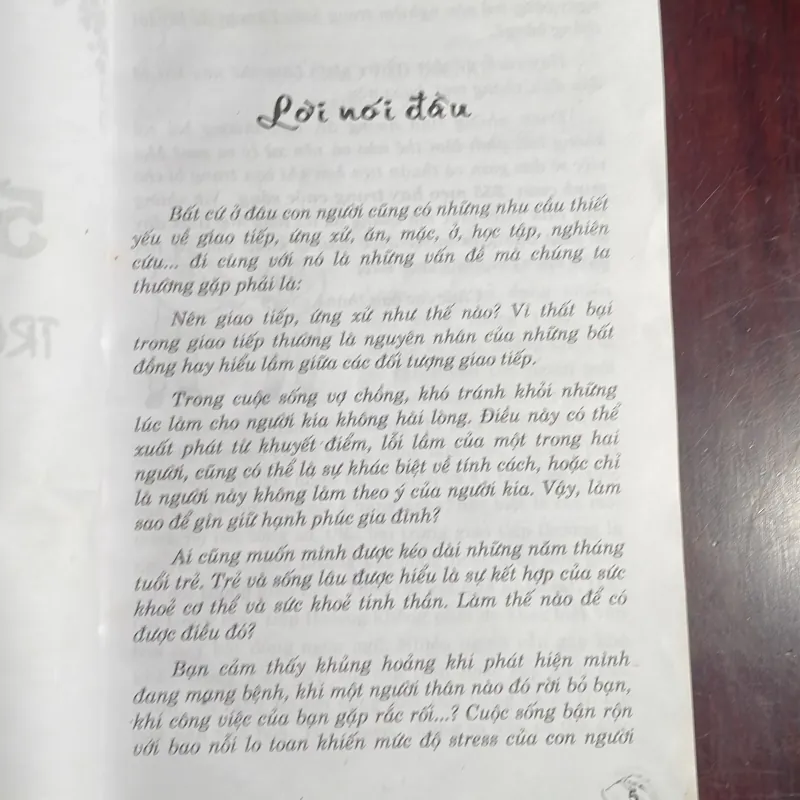 Lời nói đầu
Bất cứ ở đâu con người cũng có những nhu cầu thiết
yếu về giao tiếp, ứng xử, ăn, mặc, ở, học tập, nghiên
cứu... đi cùng với nó là những vấn đề mà chúng ta
thường gặp phải là:
Nên giao tiếp, ứng xử như thế nào? Vì thất bại
trong giao tiếp thường là nguyên nhân của những bất
đồng hay hiểu lầm giữa các đối tượng giao tiếp.
Trong cuộc sống vợ chồng, khó tránh khỏi những
lúc làm cho người kia không hài lòng. Điều này có thể
xuất phát từ khuyết điểm, lỗi lầm của một trong hai
người, cũng có thể là sự khác biệt về tính cách, hoặc chỉ
là người này không làm theo ý của người kia. Vậy, làm
sao để gìn giữ hạnh phúc gia đình?
Ai cũng muốn mình được kéo dài những năm tháng
tuổi trẻ. Trẻ và sống lâu được hiểu là sự kết hợp của sức
khoẻ cơ thể và sức khoẻ tinh thần. Làm thế nào để có
được điều đó?
Bạn cảm thấy khủng hoảng khi phát hiện mình
đang mạng bệnh, khi một người thân nào đó rời bỏ bạn,
khi công việc của bạn gặp rắc rối...? Cuộc sống bận rộn
với bao nỗi lo toan khiến mức độ stress của con người
5